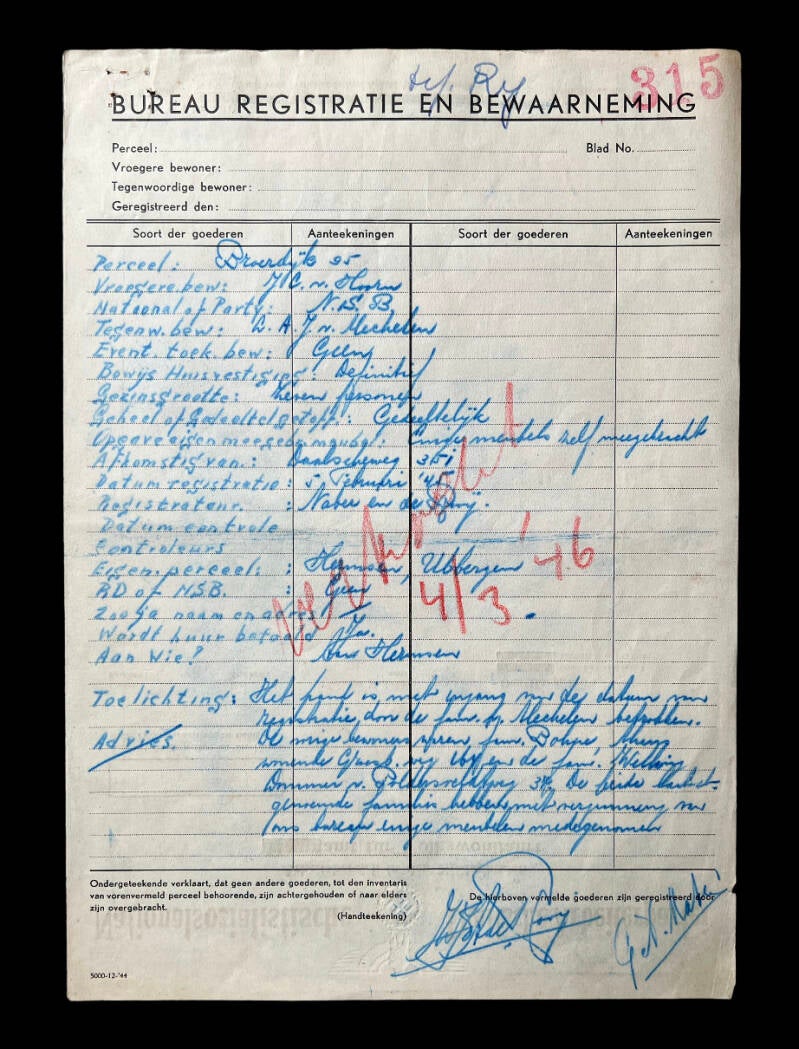 315
BUREAU REGISTRATIE EN BEWAARNEMING
Perceel:
Blad No.
Vroegere bewoner:
Tegenwoordige bewoner:
Geregistreerd den:
Soort der goederen Aanteekeningen Soort der goederen Aanteekeningen
Perceel: Broerdijk 95
Vroegere bew: J.C. v. Hoorn
Nationaal of Party: N.S.B.
Tegenw. bew: L. A. J. v. Mechelen
Event. toek. bew: Geen
Bewijs Huisvestiging: Definitief
Gezinsgrootte: zeven personen
Geheel of Gedeeltel. gestoff.: Gedeeltelijk
Opgave eigen meegebr. meubel.: Enige meubels zelf meegebracht
Afkomstig van: Daalscheweg 351
Datum registratie: 5 Februari '45
Registrateur: Naber en de Rooij.
Datum controle
Controleurs
Eigen. perceel: Hermsen, Ubbergen
RD of NSB: Geen
Zoo ja naam en adres
Wordt huur betaald Ja.
Aan Wie? Aan Hermsen
4/3 '46
Toelichting: Het pand is met ingang van de datum van
registratie door de fam. v. Mechelen betrokken.
Advies. De vorige bewoners waren fam.
wonende en de fam.
De beide laatst-
genoemde families hebben met vergunning van
ons bureau enige meubelen medegenomen
Ondergeteekende verklaart, dat geen andere goederen, tot den inventaris
van vorenvermeld perceel behoorende, zijn achtergehouden of naar elders
zijn overgebracht.
(Handteekening)
De hierboven vermelde goederen zijn geregistreerd door
5000-12-'44